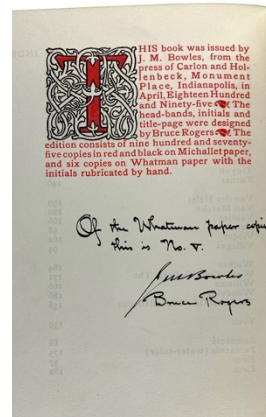 THIS book was issued by
J. M. Bowles, from the
press of Carlon and Hol-
lenbeck, Monument
Place, Indianapolis, in
April, Eighteen Hundred
and Ninety-five The
head-bands, initials and
title-page were designed
by Bruce Rogers The
edition consists of nine hundred and seventy-
five copies in red and black on Michallet paper,
and six copies on Whatman paper with the
initials rubricated by hand.
Of the Whatman paper copies
this is No. V.
J M Bowles
Bruce Rogers